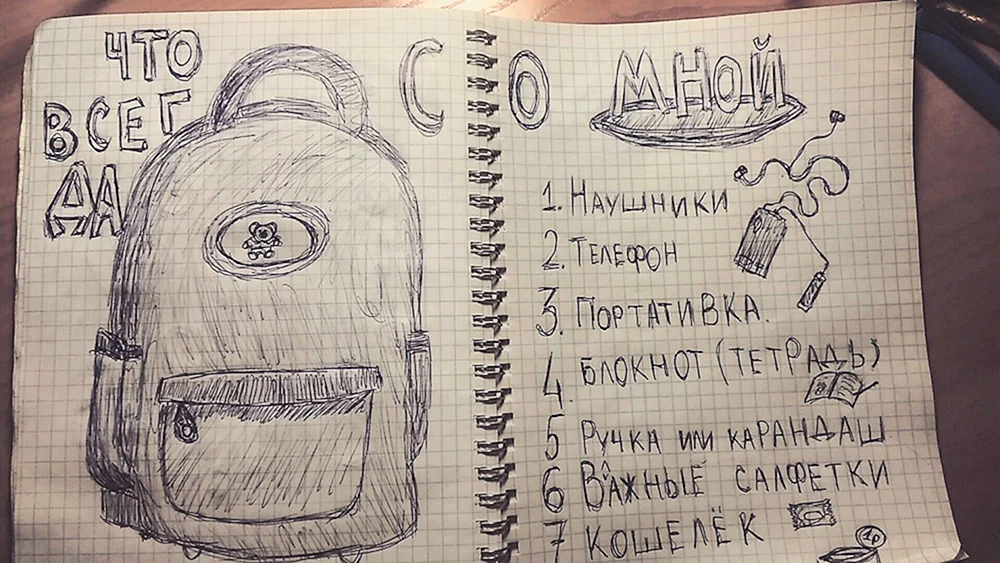 ЧТО
ВСЕГ
ДА
С О МНОЙ
1. НАУШНИКИ
2. ТЕЛЕФОН
3. ПОРТАТИВКА.
4. БЛОКНОТ (ТЕТРАДЬ)
5 РУЧКА ИЛИ КАРАНДАШ
6 ВЛАЖНЫЕ САЛФЕТКИ
7 КОШЕЛЁК
1р